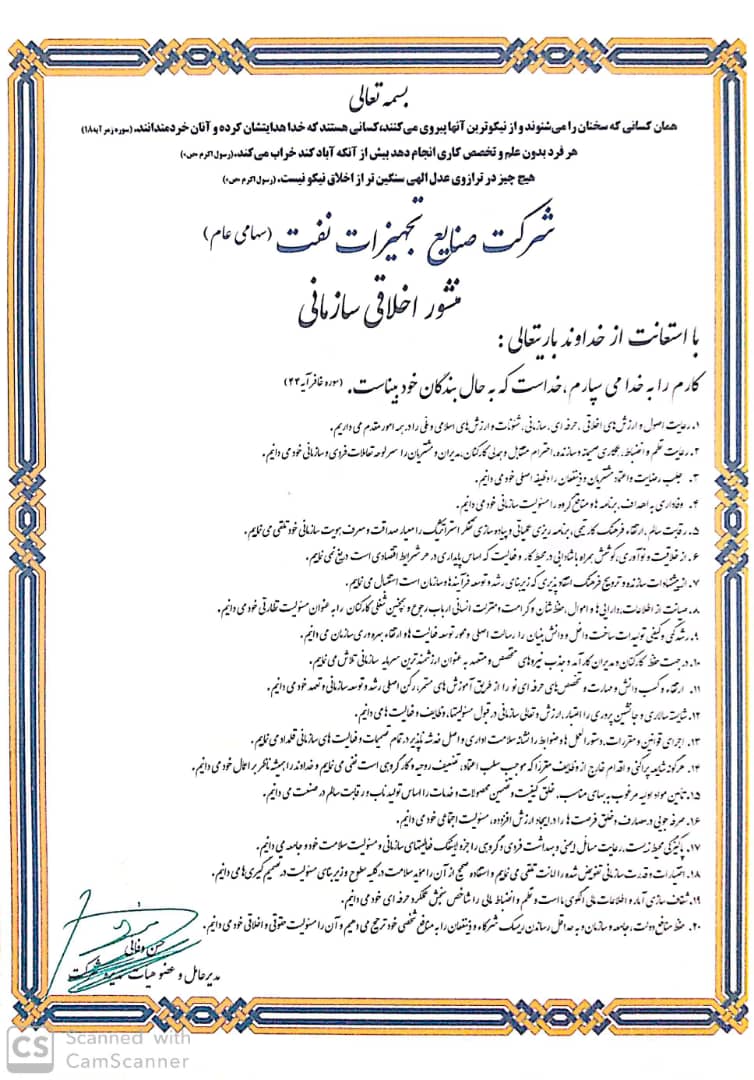 بسمه تعالی
همان کسانی که سخنان را می‌شنوند و از نیکوترین آنها پیروی می‌کنند، کسانی هستند که خدا هدایتشان کرده و آنان خردمندانند. (سوره زمر آیه ۱۸)
هر فرد بدون علم و تخصص کاری انجام دهد بیش از آنکه آباد کند خراب می‌کند. (رسول اکرم «ص»)
هیچ چیز در ترازوی عدل الهی سنگین تر از اخلاق نیکو نیست. (رسول اکرم «ص»)
شرکت صنایع تجهیزات نفت (سهامی عام)
منشور اخلاقی سازمانی
با استعانت از خداوند باریتعالی :
کارم را به خدا می سپارم ، خداست که به حال بندگان خود بیناست. (سوره غافر آیه ۴۴)
۱. رعایت اصول و ارزش‌های اخلاقی، حرفه ای، سازمانی، شئونات و ارزش‌های اسلامی و ملی را در همه امور مقدم می داریم.
۲. رعایت نظم و انضباط، همکاری صمیمانه و سازنده، احترام متقابل و همدلی کارکنان، مدیران و مشتریان را سرلوحه تعاملات فردی و سازمانی خود می دانیم.
۳. جلب رضایت و اعتماد مشتریان و ذینفعان را وظیفه اصلی خود می دانیم.
۴. وفاداری به اهداف، برنامه ها و منافع گروه را مسئولیت سازمانی خود می دانیم.
۵. رقابت سالم، ارتقاء فرهنگ کار تیمی، برنامه ریزی عملیاتی و پیاده سازی تفکر استراتژیک را معیار صداقت و معرف هویت سازمانی خود تلقی می نماییم.
۶. از خلاقیت و نوآوری، کوشش همراه با شادابی در محیط کار و فعالیت که اساس پایداری در هر شرایط اقتصادی است دریغ نمی نماییم.
۷. از پیشنهادات سازنده و ترویج فرهنگ انتقاد پذیری که زیربنای رشد و توسعه فرآیندها و سازمان است استقبال می نماییم.
۸. صیانت از اطلاعات، دارایی ها و اموال، حفظ شان و کرامت و منزلت انسانی ارباب رجوع و همچنین شغلی کارکنان را به عنوان مسئولیت نظارتی خود می دانیم.
۹. رشد کمی و کیفی تولیدات ساخت داخل و دانش بنیان را رسالت اصلی و محور توسعه فعالیت ها و ارتقاء بهره وری سازمان می دانیم.
۱۰. در جهت حفظ کارکنان و مدیران کارآمد و جذب نیروهای متخصص و متعهد به عنوان ارزشمندترین سرمایه سازمانی تلاش می نماییم.
۱۱. ارتقاء و کسب دانش و مهارت و تخصص های حرفه ای نو را از طریق آموزش های مستمر، رکن اصلی رشد و توسعه سازمانی و تعهد خود می دانیم.
۱۲. شایسته سالاری و جانشین پروری را اعتبار، ارزش و تعالی سازمانی در قبول مسئولیتها، وظایف و فعالیت ها می دانیم.
۱۳. اجرای قوانین و مقررات، دستورالعمل ها و ضوابط را نشانه سلامت اداری و اصل خدشه ناپذیر در تمام تصمیمات و فعالیت های سازمانی قلمداد می نماییم.
۱۴. هرگونه شایعه پراکنی و اقدام خارج از وظایف مقرر را که موجب سلب اعتماد، تضعیف روحیه و کار گروهی است نفی می نماییم و خداوند را همیشه ناظر بر اعمال خود می دانیم.
۱۵. تأمین مواد اولیه مرغوب به بهای مناسب، خلق کیفیت و تضمین محصولات و خدمات را اساس تولید ناب و رقابت سالم در صنعت می دانیم.
۱۶. صرفه جویی در مصارف و خلق فرصت ها را در ایجاد ارزش افزوده، مسئولیت اجتماعی خود می دانیم.
۱۷. پاکیزگی محیط زیست، رعایت مسائل ایمنی و بهداشت فردی و گروهی را جزء لاینفک فعالیتهای سازمانی و مسئولیت سلامت خود و جامعه می دانیم.
۱۸. اختیارات و قدرت سازمانی تفویض شده را امانت تلقی می نماییم و استفاده صحیح از آن را مؤید سلامت در کلیه سطوح و زیربنای مسئولیت در تصمیم گیری ها می دانیم.
۱۹. شفاف سازی آمار و اطلاعات مالی الگوی ما است و نظم و انضباط مالی را شاخص سنجش عملکرد حرفه ای خود می دانیم.
۲۰. حفظ منافع دولت، جامعه و سازمان و به حداقل رساندن ریسک شرکاء و ذینفعان را به منافع شخصی خود ترجیح می دهیم و آن را مسئولیت حقوقی و اخلاقی خود می دانیم.
حسن وفائی
مدیرعامل و عضو هیات مدیره شرکت
CS Scanned with
CamScanner